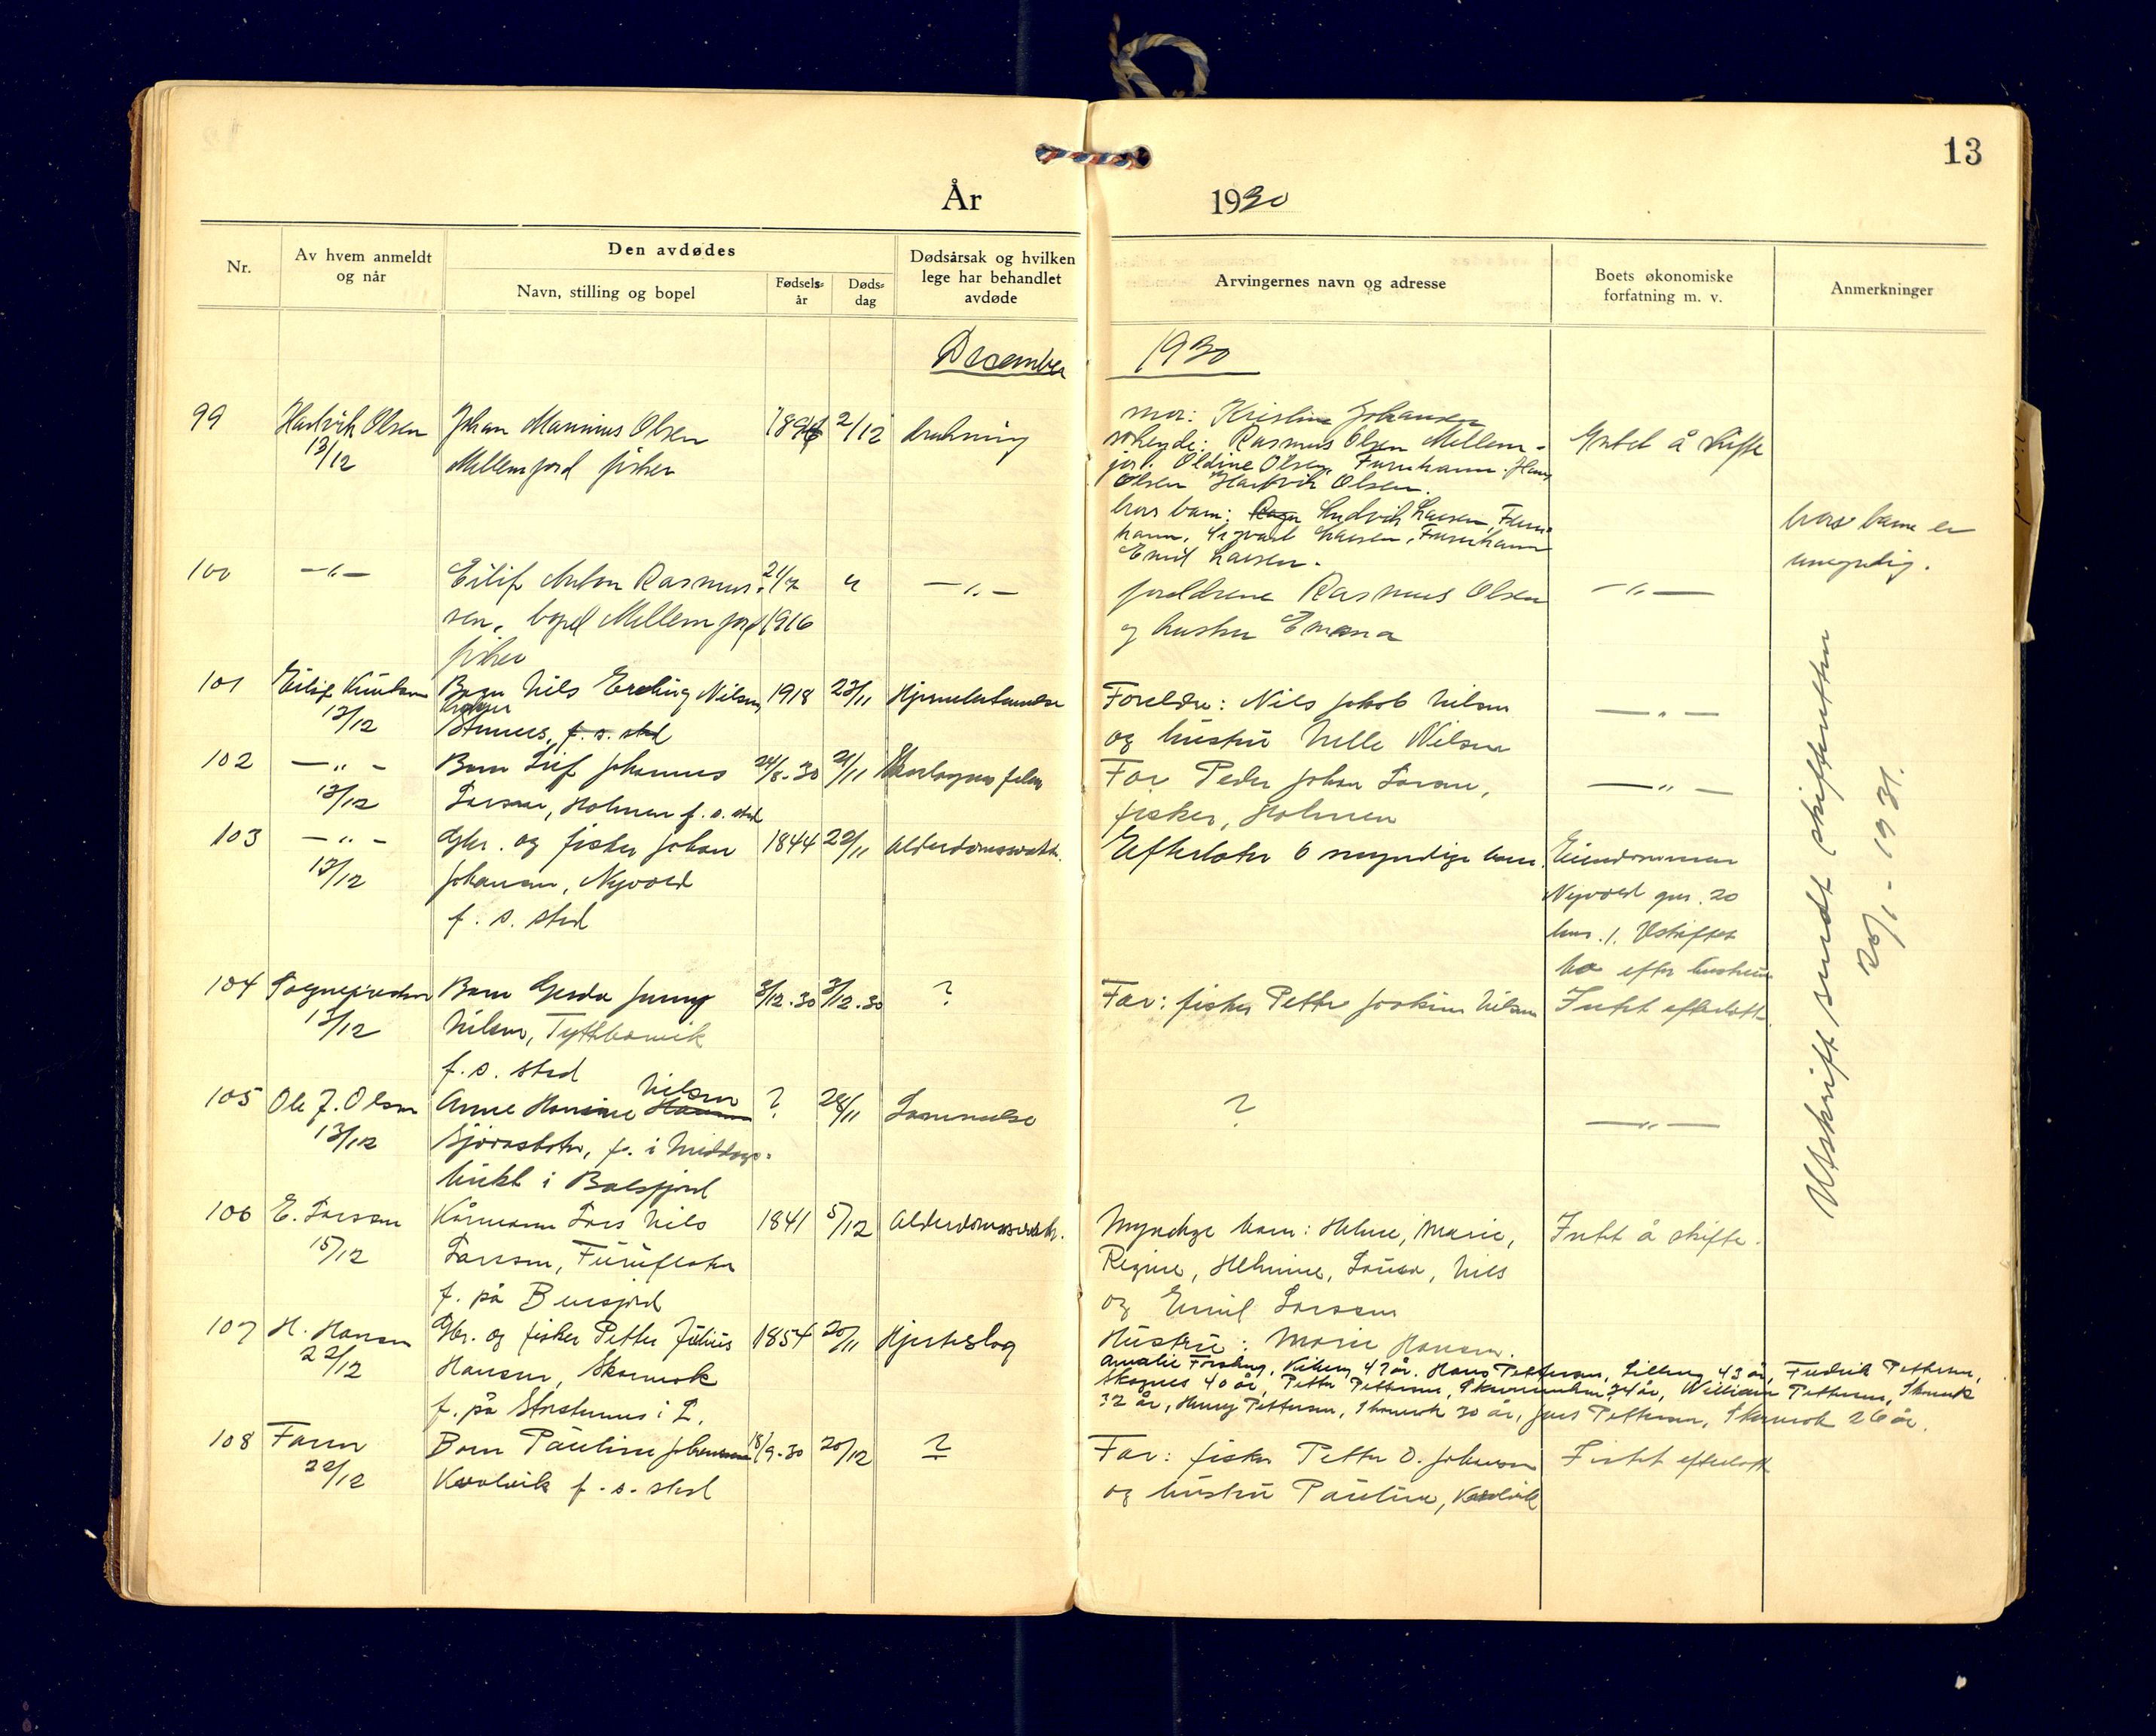 13
År 1930
Nr.
Av hvem anmeldt
og når
Den avdødes
Navn, stilling og bopel
Fødsels-
år
Døds-
dag
Dødsårsak og hvilken
lege har behandlet
avdøde
Arvingernes navn og adresse
Boets økonomiske
forfatning m. v.
Anmerkninger
December 1930
99 Hartvik Olsen Johan Marinius Olsen 2/12 drukning
13/12 Mellemjord fisker
mor: Kristine Johansen
søskende: Rasmus Olsen Mellem-
jord. Oldine Olsen, Furuhaun. Hans
Olsen Hartvik Olsen.
brors barn: Ludvik Larsen, Furu-
haun, Sigvart Larsen, Furuhaun
Emil Larsen.
Intet å skifte
brors barna er
umyndig.
100 -"- Eilif Anton Rasmus- 21/7 " -"-
sen, bopel Mellemjord 1916
fisker
foreldrene Rasmus Olsen
og hustru Emma
-"-
101 Eilif Knutsen Nils Erling Nilsen 1918 23/11
13/12 f. s. sted
Foreldre: Nils Jakob Nilsen
og hustru Nelle Nilsen
-"-
102 -"- Barn Leif Johannes 24/8-30 21/11
13/12 Larsen, Holmen f. s. sted
Far Peder Johan Larsen,
fisker, Holmen
-"-
103 -"- Gbr. og fisker Johan 1844 22/11 Alderdomssvakh.
13/12 Johansen, Nyvold
f. s. sted
Efterlater 6 myndige barn.
Eiendommen
Nyvold gnr. 20
bnr. 1. Uskiftet
bo efter hustruen
104 Sognepresten Barn Gerda Jenny 3/12-30 3/12-30 ?
13/12 Nilsen, Tyttebærvik
f. s. sted
Far: fisker Petter Joakim Nilsen
Intet efterlatt.
105 Ole J. Olsen Anne Hansine Nilsen ? 28/11 Lammelse
13/12 Sjøvassbotn, f. i Middags-
bukt i Balsfjord
?
-"-
106 E. Larsen Kårmann Lars Nils 1841 5/12 Alderdomssvakh.
15/12 Larsen, Furuflaten
f. på Bensjord
Myndige barn: Helene, Marie,
Regine, Helmine, Lovisa, Nils
og Emil Larssen
Intet å skifte.
107 H. Hansen Gbr. og fisker Petter Julius 1854 20/11 Hjerteslag
22/12 Hansen, Skarmok
f. på Storstennes i L.
Hustru: Marie Hansen.
Amalie Forsberg, 47 år. Hans Pettersen, 43 år, Fredrik Pettersen,
Skognes 40 år, Petter Pettersen, 34 år, William Pettersen, Skarmok
32 år, Henry Pettersen, Skarmok 30 år, Jens Pettersen, Skarmok 26 år.
108 Faren Barn Pauline Johansen 18/9-30 20/12 ?
22/12 Kvalvik f. s. sted
Far: fisker Petter O. Johansen
og hustru Pauline, Kvalvik
Intet efterlatt
Utskrift sendt skifteretten
20/1-1931.